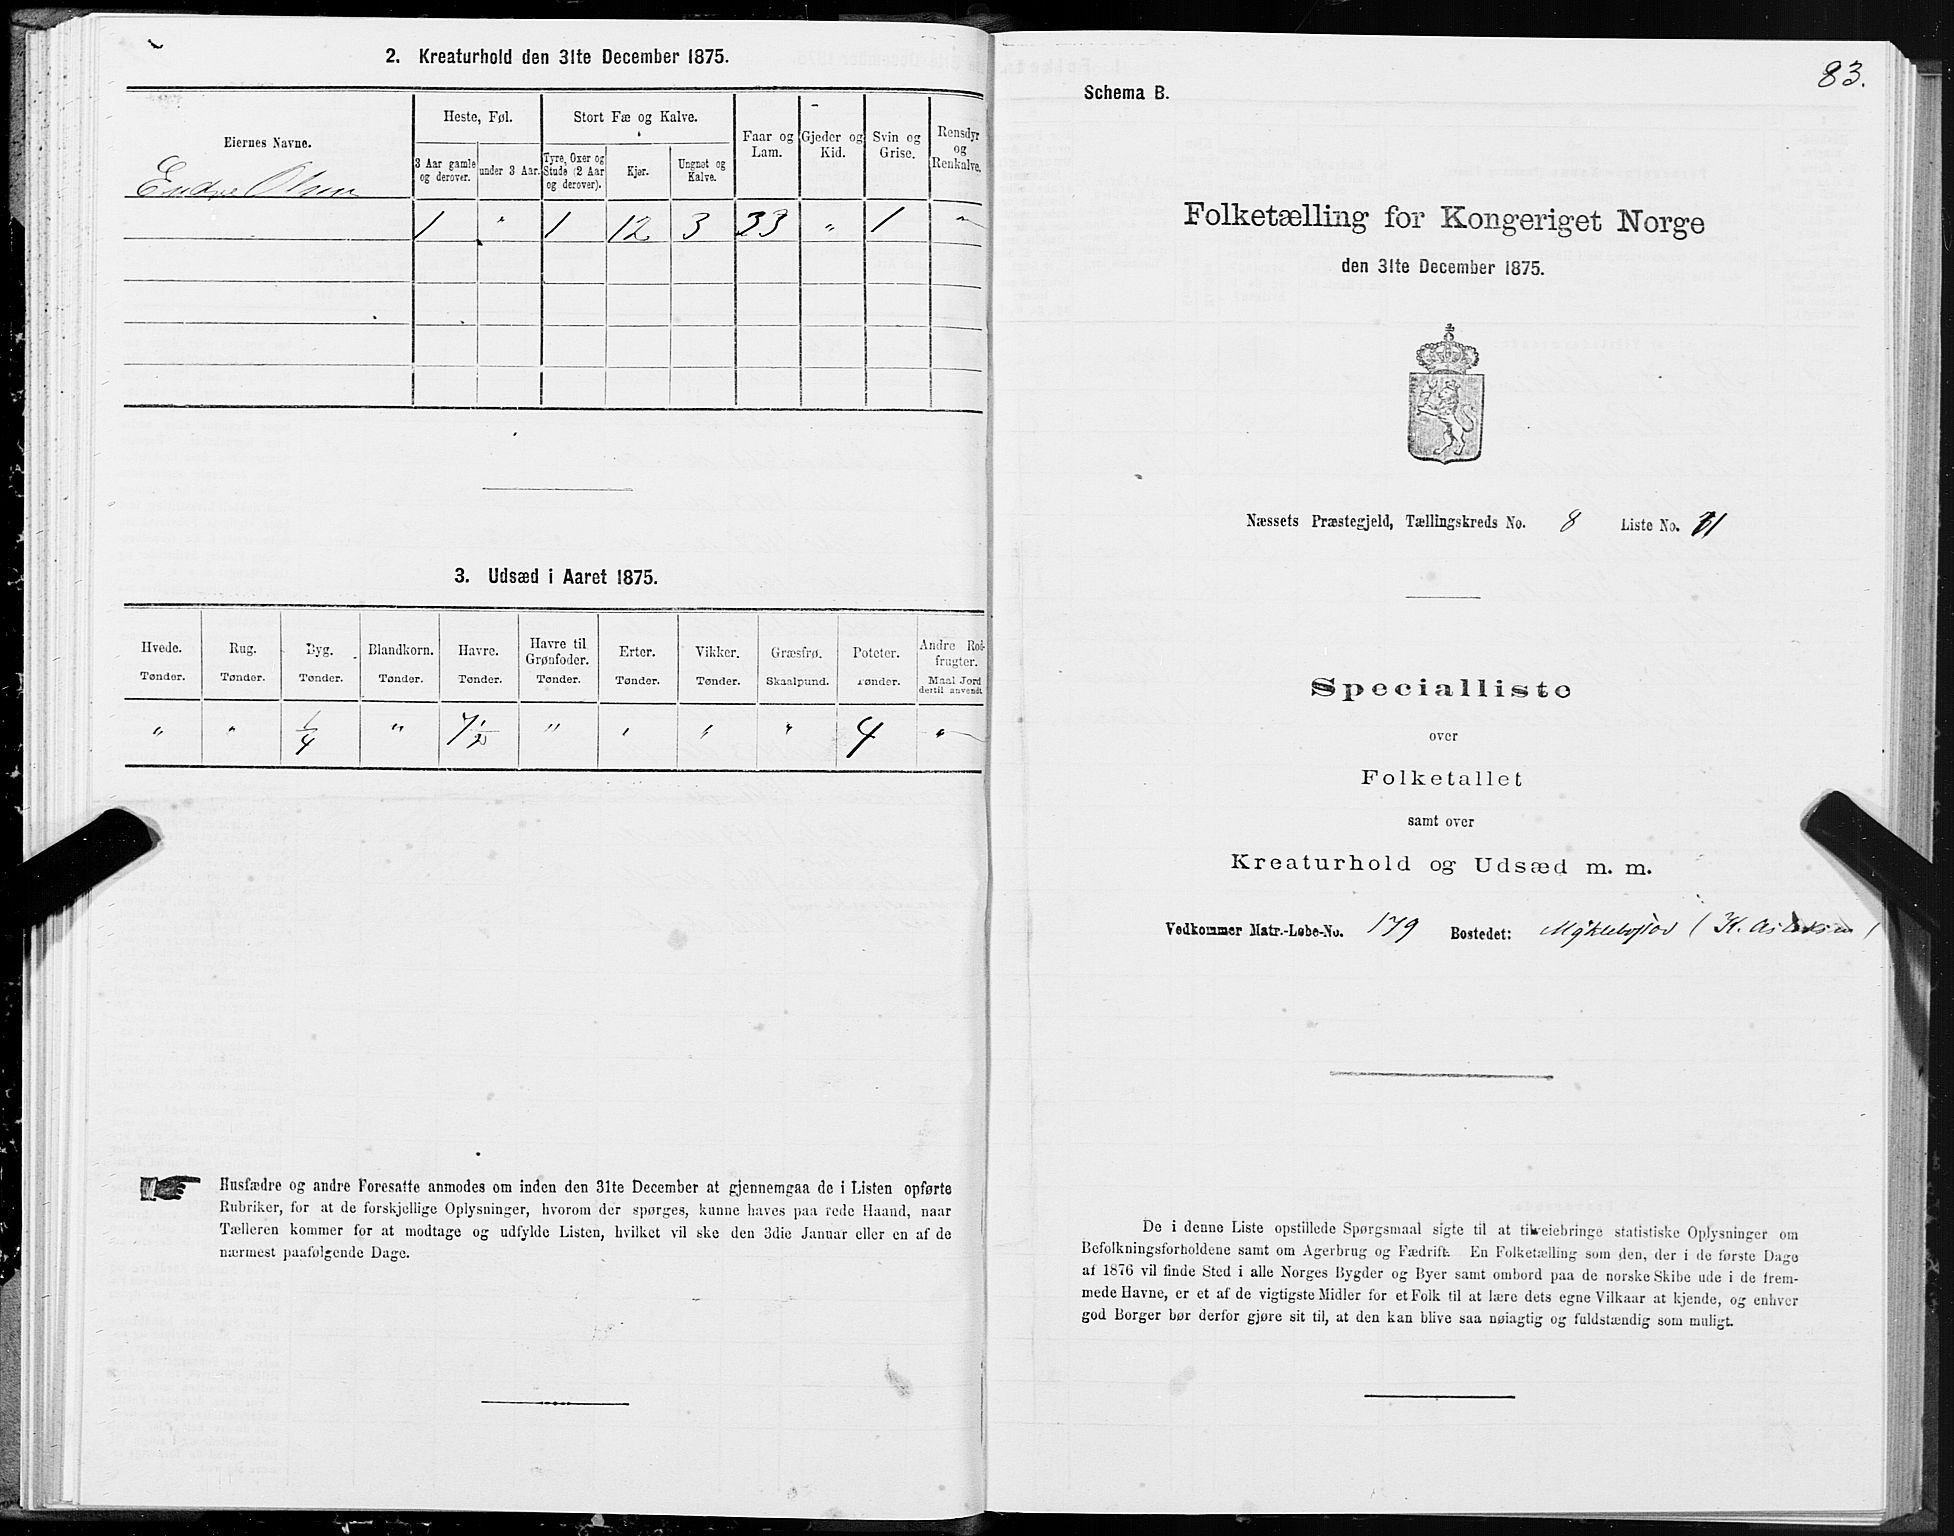 2. Kreaturhold den 31te December 1875.
Eiernes Navne. Heste, Føl. Stort Fæ og Kalve. Faar og Lam. Gjeder og Kid. Svin og Grise. Rensdyr og Renkalve.
3 Aar gamle og derover. under 3 Aar. Tyre, Oxer og Stude (2 Aar og derover). Kjør. Ungnøt og Kalve.
Endre Olsen
1 " 1 12 3 33 " 1 "
3. Udsæd i Aaret 1875.
Hvede. Rug. Byg. Blandkorn. Havre. Havre til Grønfoder. Erter. Vikker. Græsfrø. Poteter. Andre Rodfrugter.
Tønder. Tønder. Tønder. Tønder. Tønder. Tønder. Tønder. Tønder. Skaalpund. Tønder. Maal Jord dertil anvendt
" " 1/4 " 7 1/2 " " " " 4 "
Husfædre og andre Foresatte anmodes om inden den 31te December at gjennemgaa de i Listen opførte
Rubriker, for at de forskjellige Oplysninger, hvorom der spørges, kunne haves paa rede Haand, naar
Tælleren kommer for at modtage og udfylde Listen, hvilket vil ske den 3die Januar eller en af de
nærmest paafølgende Dage.
83.
Schema B.
Folketælling for Kongeriget Norge
den 31te December 1875.
Næssets Præstegjeld, Tællingskreds No. 8 Liste No.
Specialliste
over
Folketallet
samt over
Kreaturhold og Udsæd m. m.
Vedkommer Matr.-Løbe-No. 179 Bostedet: Myklebostad (K. Aslaksen)
De i denne Liste opstillede Spørgsmaal sigte til at tilveiebringe statistiske Oplysninger om
Befolkningsforholdene samt om Agerbrug og Fædrift. En Folketælling som den, der i de første Dage
af 1876 vil finde Sted i alle Norges Bygder og Byer samt ombord paa de norske Skibe ude i de frem-
mede Havne, er et af de vigtigste Midler for et Folk til at lære dets egne Vilkaar at kjende, og enhver
god Borger bør derfor gjøre sit til, at den kan blive saa nøiagtig og fuldstændig som muligt.